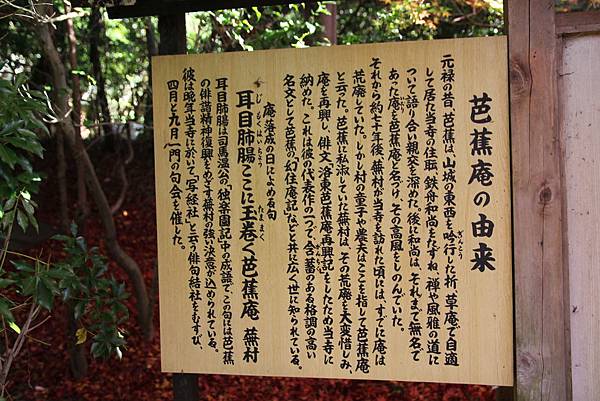 芭蕉庵の由来
元禄の昔、芭蕉は山城の東西を吟行した折、草庵で自適
して居た当寺の住職・鉄舟和尚をたずね、禅や風雅の道に
ついて語り合い親交を深めた。後に和尚は、それまで無名で
あった庵を芭蕉庵と名づけ、その高風をしのんでいた。
それから約七十年後、蕪村が当寺を訪れた頃には、すでに庵は
荒廃していた。しかし村の童子や農夫はここを指して芭蕉庵
と云った。芭蕉に私淑していた蕪村は、その荒廃を大変惜しみ、
庵を再興し、俳文『洛東芭蕉庵再興記』をしたため当寺に
納めた。これは彼の代表作の一つで、含蓄のある格調の高い
名文として芭蕉の『幻住庵記』などと共に広く世に知られている。
庵落成の日によめる句
耳目肺腸ここに玉巻く芭蕉庵 蕪村
じもくはいちょう たままく
耳目肺腸は司馬温公の『独楽園記』中の成語で、この句には芭蕉
の俳諧精神復興をめざす蕪村の強い決意が込められている。
彼は晩年当寺に於いて「写経社」と云う俳句結社をむすび、
四月と九月、一門の句会を催した。